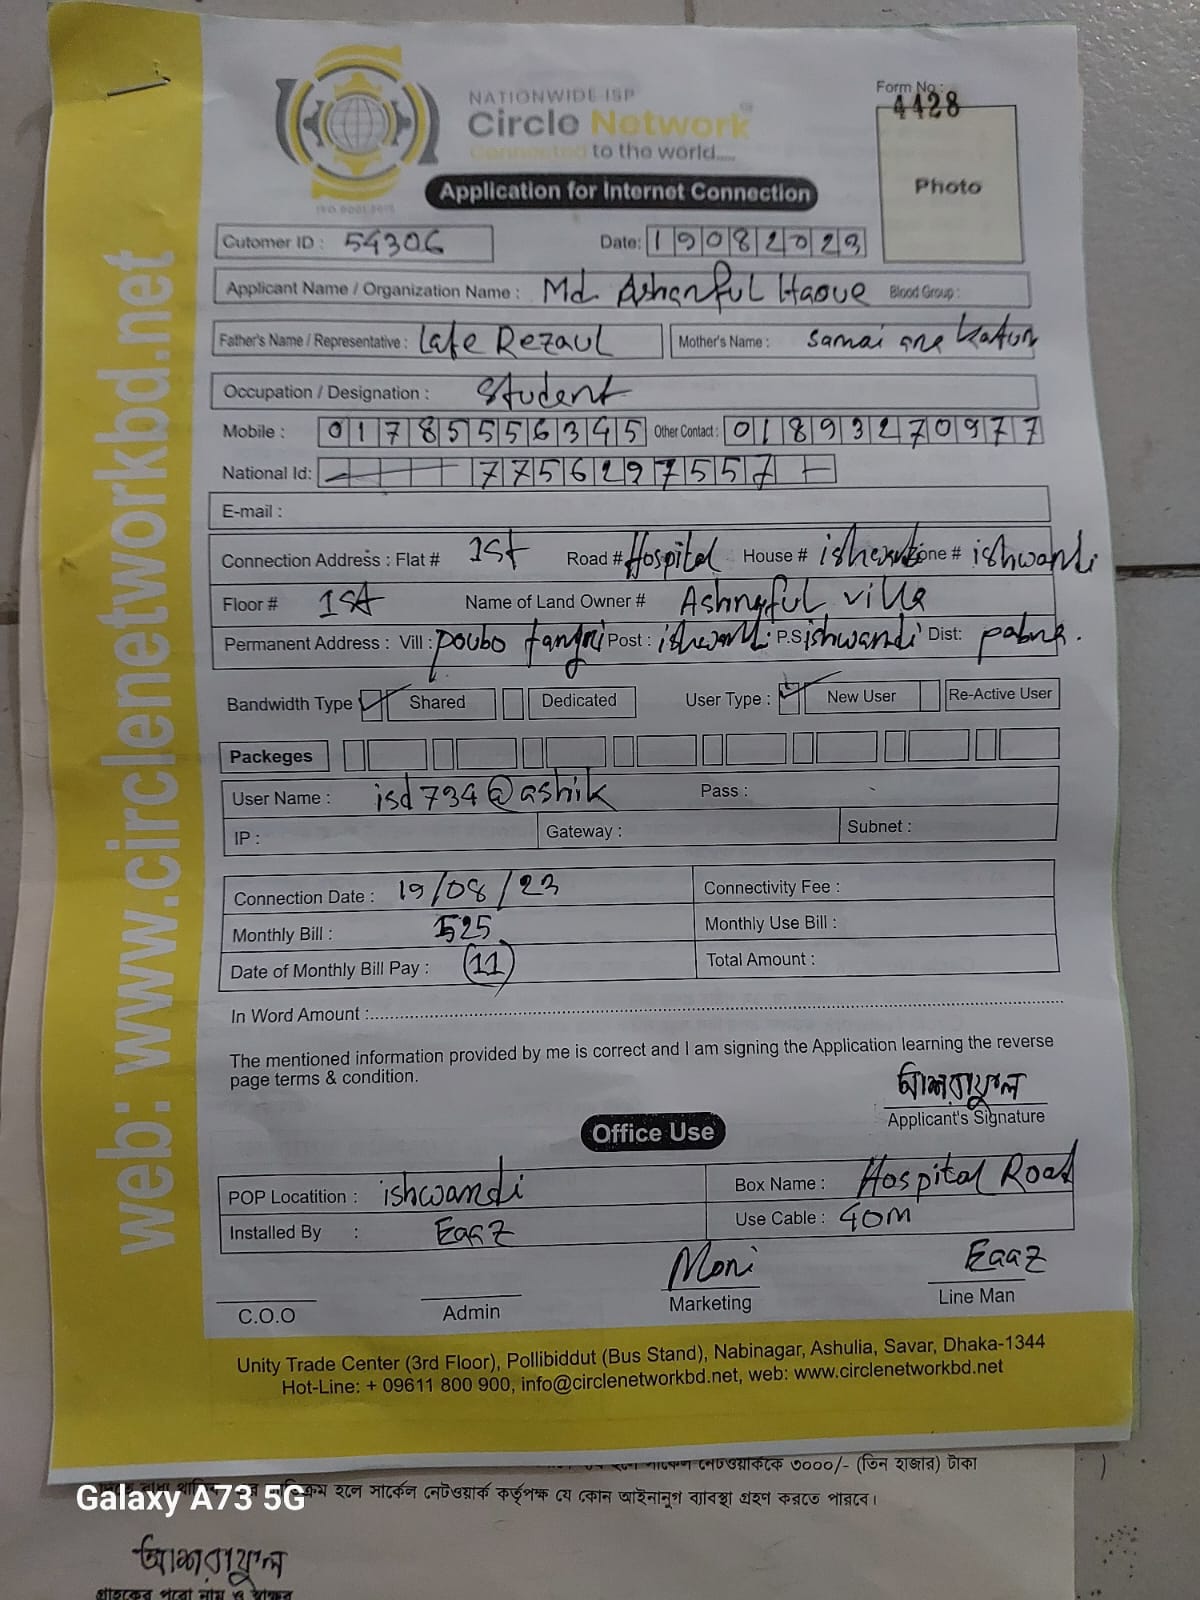 web: www.circlenetworkbd.net
NATIONWIDE ISP
Circle Network
Connected to the world.....
ISO 9001:2015
Form No : 4428
Photo
Application for Internet Connection
Cutomer ID : 54306 Date: 19082023
Applicant Name / Organization Name : Md. Ashanful Haque Blood Group :
Father's Name / Representative : Late Rezaul Mother's Name : Samai ara Katun
Occupation / Designation : Student
Mobile : 01785556345 Other Contact : 01893270977
National Id: 7756297557
E-mail :
Connection Address : Flat # 1st Road # Hospital House # Zone # ishwardi
Floor # 1st Name of Land Owner # Ashraful villa
Permanent Address : Vill : poubo tangri Post : ishwardi P.S ishwardi Dist: pabna.
Bandwidth Type Shared Dedicated User Type : New User Re-Active User
Packeges
User Name : isd734@ashik Pass :
IP : Gateway : Subnet :
Connection Date : 19/08/23 Connectivity Fee :
Monthly Bill : 525 Monthly Use Bill :
Date of Monthly Bill Pay : 11 Total Amount :
In Word Amount :
The mentioned information provided by me is correct and I am signing the Application learning the reverse
page terms & condition.
আশরাফুল
Applicant's Signature
Office Use
POP Locatition : ishwardi Box Name : Hospital Road
Installed By : Eaaz Use Cable : 40M
Moni Eaaz
C.O.O Admin Marketing Line Man
Unity Trade Center (3rd Floor), Pollibiddut (Bus Stand), Nabinagar, Ashulia, Savar, Dhaka-1344
Hot-Line: + 09611 800 900, info@circlenetworkbd.net, web: www.circlenetworkbd.net
নেটওয়ার্ককে ৩০০০/- (তিন হাজার) টাকা
হলে সার্কেল নেটওয়ার্ক কর্তৃপক্ষ যে কোন আইনানুগ ব্যাবস্থা গ্রহণ করতে পারবে।
Galaxy A73 5G
আশরাফুল
গ্রাহকের পুরো নাম ও স্বাক্ষর